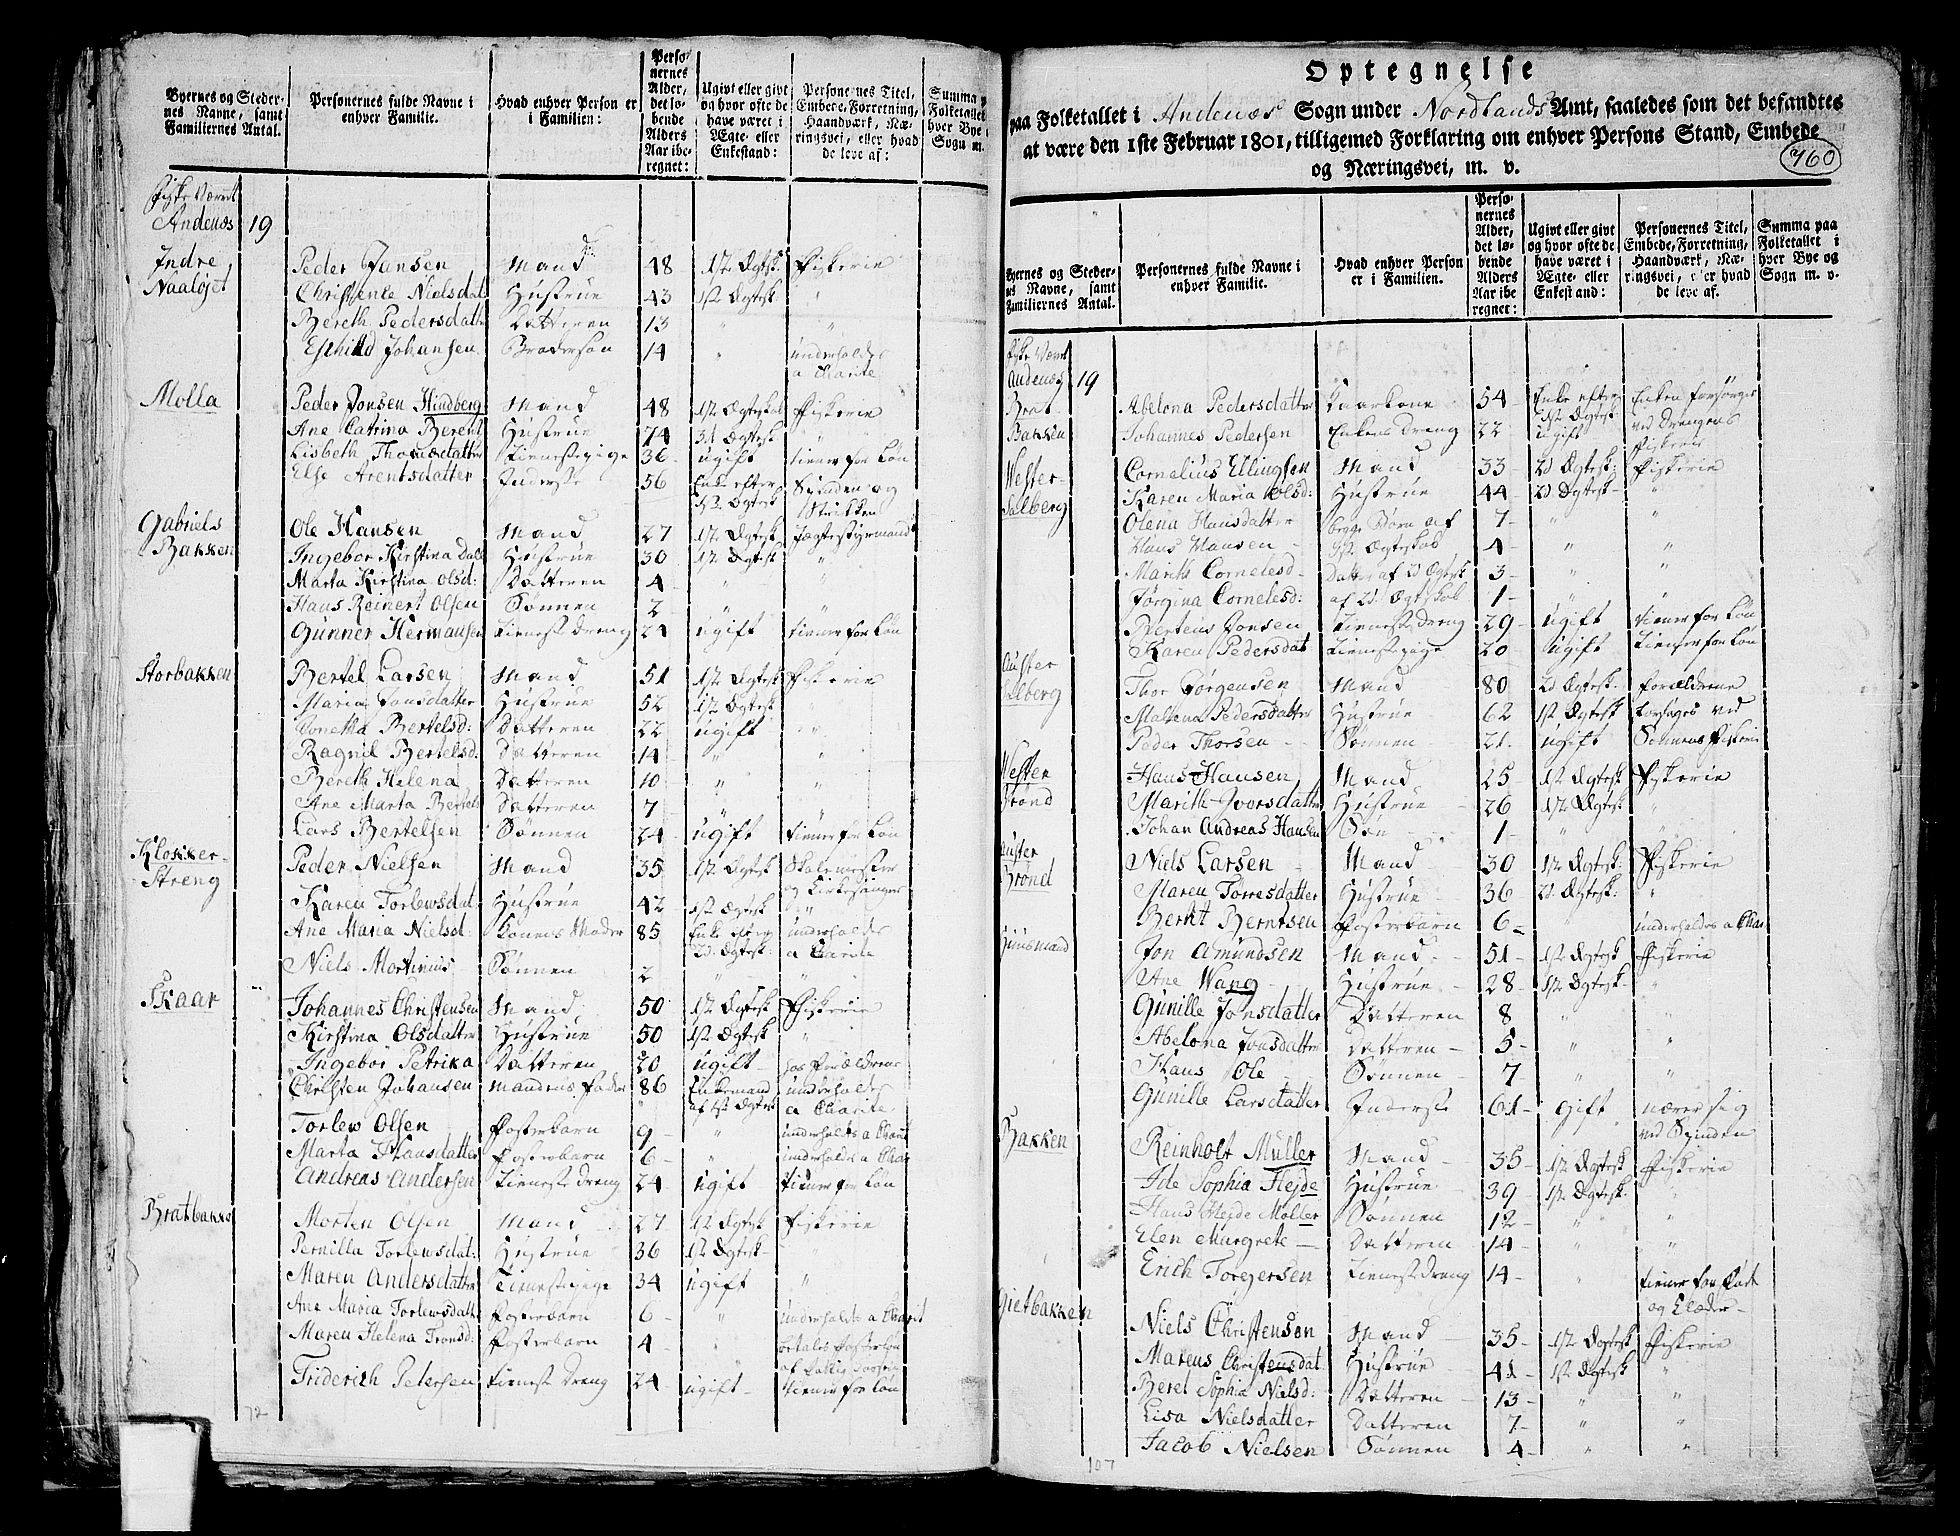 Byernes og Steder-
nes Navne, samt
Familiernes Antal.
Personernes fulde Navne i
enhver Familie.
Hvad enhver Person er
i Familien:
Perso-
nernes
Alder,
det lø-
bende
Alders
Aar ibe-
regnet:
Ugivt eller givt
og hvor ofte de
have været i
Ægte- eller
Enkestand:
Personernes Titel,
Embede, Forretning,
Haandværk, Næ-
ringsvei, eller hvad
de leve af:
Summa p
Folketallet
hver Bye
Sogn m.
Fiske Været
Andenæs 19
Indre Peder Jansen Mand 48 1ste Ægtesk. Fiskerie
Naaløjet Christenke Nielsdat Hustrue 43 1ste Ægtesk "
Bereth Pedersdatt Datteren 13 " "
Eschild Johansen Brodersøn 14 " underholdes
a Charite
Molla Peder Jonsen Hindberg Mand 48 1ste Ægteskab Fiskerie
Ane Catrina Berent Hustrue 74 3d Ægtesk "
Lisbeth Thomsdatter Tienestepige 36 ugift tiener for Løn
Else Arentsdatter Inderste 56 Enke efter Spinden og
1ste Ægtesk Strikken
Gabriels Ole Hansen Mand 27 1ste Ægtesk Jægtestyrmand
Bakken Ingebor Kirstina Dall Hustrue 30 1ste Ægtesk "
Marta Kirstina Olsd: Datteren 4 " "
Hans Reinert Olsen Sønnen 2 " "
Gunner Hermansen Tieneste Dreng 24 ugift tiener for Løn
Storbakken Bertel Larsen Mand 51 1ste Ægtesk Fiskerie
Maria Jonsdatter Hustrue 52 1ste Ægtesk "
Jonetta Bertelsd: Datteren 22 ugift "
Ragnil Bertelsd: Datteren 14 " "
Bereth Helena Datteren 10 " "
Ane Marta Bertels Datteren 7 " "
Lars Bertelsen Sønnen 24 ugift tiener for Løn
Klokker- Peder Nielsen Mand 35 1ste Ægtesk Skolemester
Streng og Kirkesanger
Karen Torlewsdat Hustrue 42 1ste Ægtesk "
Ane Maria Nielsd: Konens Moder 85 Enke efter underholdes
2d. Ægtesk: a Charite
Niels Mortinus Sønnen 2 "
Skaar Johannes Christensen Mand 50 1ste Ægtesk Fiskerie
Kirstina Olsdatter Hustrue 50 1ste Ægtesk "
Ingebor Petrika Datteren 20 ugift hos Forældrene
Christen Johansen Mandens Fader 86 Enkemand underholdes
af 1ste Ægtesk a Charite
Torlew Olsen Fosterbarn 9 " underholdes a Charit
Marta Hansdatter Fosterbarn 6 " underholdes a Char
Andreas Andersen Tieneste Dreng 24 ugift Tiener for Løn
Bratbakke Morten Olsen Mand 27 1ste Ægtesk Fiskerie
Pernilla Torlewsdat: Hustrue 36 1ste Ægtesk "
Maren Andersdatter Tienestepige 34 ugift "
Ane Maria Torlewsdatt Fosterbarn 6 " underholdes a Charit
Maren Helena Tronsd: Fosterbarn 4 " betales Fosterløn
Friderich Petersen Tieneste Dreng 24 ugift tiener for Løn
72
Optegnelse
paa Folketallet i Andenæs Sogn under Nordlands Amt, saaledes som det befandtes
at være den 1ste Februar 1801, tilligemed Forklaring om enhver Persons Stand, Embede
og Næringsvei, m. v.
760
Byernes og Steder-
nes Navne, samt
Familiernes Antal.
Personernes fulde Navne i
enhver Familie.
Hvad enhver Person
er i Familien.
Perso-
nernes
Alder,
det lø-
bende
Alders
Aar ibe
regnet:
Ugivt eller givt
og hvor ofte de
have været i
Ægte- eller
Enkestand:
Personernes Titel,
Embede, Forretning,
Haandværk, Næ-
ringsvei, eller hvad
de leve af.
Summa paa
Folketallet i
hver Bye og
Sogn m. v.
Fiske Været
Andenæs 19
Brat- Abelona Pedersdatter Kaarkone 54 Enke efter Enken forsørges
1ste Ægtesk ved Drengens
Bakken Johannes Pedersen Enkens Dreng 22 ugift Fiskerie
Wester- Cornelius Ellingsen Mand 33 2d Ægtesk: Fiskerie
Salberg Karen Maria Olsd: Hustrue 44 2d Ægtesk "
Olena Hansdatter begge Børn af 7 " "
Hans Hansen 1ste Ægteskab 4 " "
Marith Cornelesd Datter af 2d Ægtesk 3 " "
Jørgina Cornelesd: af 2d. Ægteskab 1 " "
Berteus Jonsen Tieneste Dreng 29 ugift tiener for Løn
Karen Pedersdat Tienestepige 20 ugift Tiener for Løn
Auster Thor Jørgensen Mand 80 2d Ægtesk. Forældrene
Salberg Maltena Pedersdatter Hustrue 62 1ste Ægtesk forsørges ved
Peder Thorsen Sønnen 21 ugift Sønnens Fiskerie
Wester Hans Hansen Mand 25 1ste Ægtesk Fiskerie
Brønd Marith Iworsdatter Hustrue 26 1ste Ægtesk "
Johan Andreas Hansen Søn 1 " "
Auster Niels Larsen Mand 30 1ste Ægtesk: Fiskerie
Brønd Maren Torresdatter Hustrue 36 2d. Ægtesk: "
Bernt Berntsen Fosterbarn 6 " underholdes a Char
Huusmand Jon Amundsen Mand 51 1ste Ægtesk Fiskerie
Ane Wang Hustrue 28 1ste Ægtesk "
Gunille Jonsdatter Datteren 8 " "
Abelona Jonsdatter Datteren 5 " "
Hans Ole Sønnen 7 " "
Gunille Larsdatter Inderste 61 gift nærer sig
ved Spinden
Bakken Reinholt Muller Mand 35 1ste Ægtesk Fiskerie
Ide Sophia Hejde Hustrue 39 1ste Ægtesk "
Hans Hejde Møller Sønnen 12 " "
Elen Murgrete Datteren 14 " "
Erich Torgersen Tieneste Dreng 14 " tiener for Føde
og Klæder
Gietbakken Niels Christensen Mand 35 1ste Ægtesk Fiskerie
Mareus Christensdat Hustrue 41 1ste Ægtesk "
Beret Sophia Nielsd: Datteren 13 " "
Lisa Nielsdatter Datteren 7 " "
Jacob Nielsen Sønnen 4 " "
107